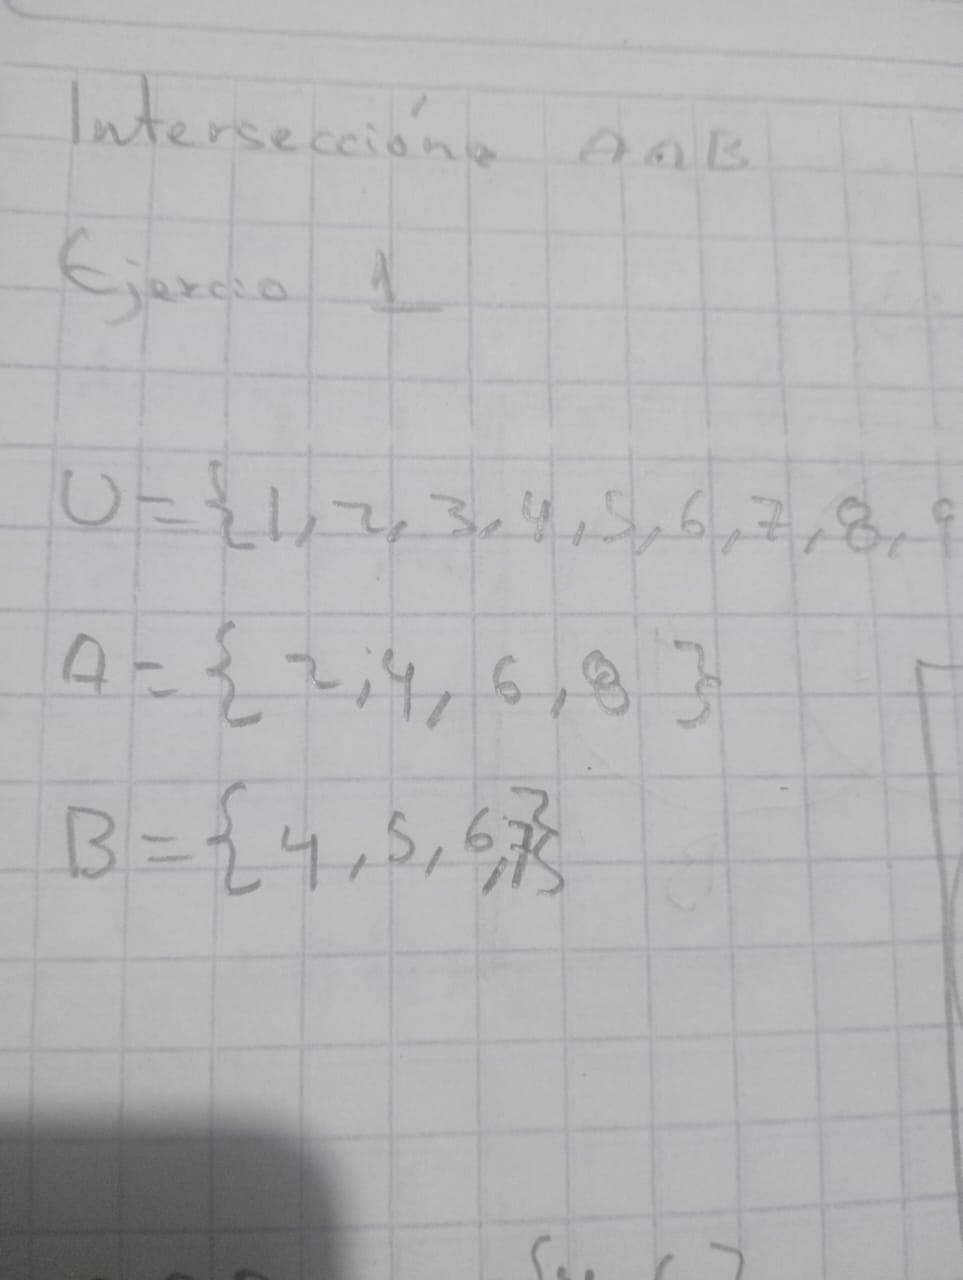 Intersección A ∩ B
Ejercio 1
U = {1, 2, 3, 4, 5, 6, 7, 8, 9
A = { 2, 4, 6, 8 }
B = { 4, 5, 6, 7}